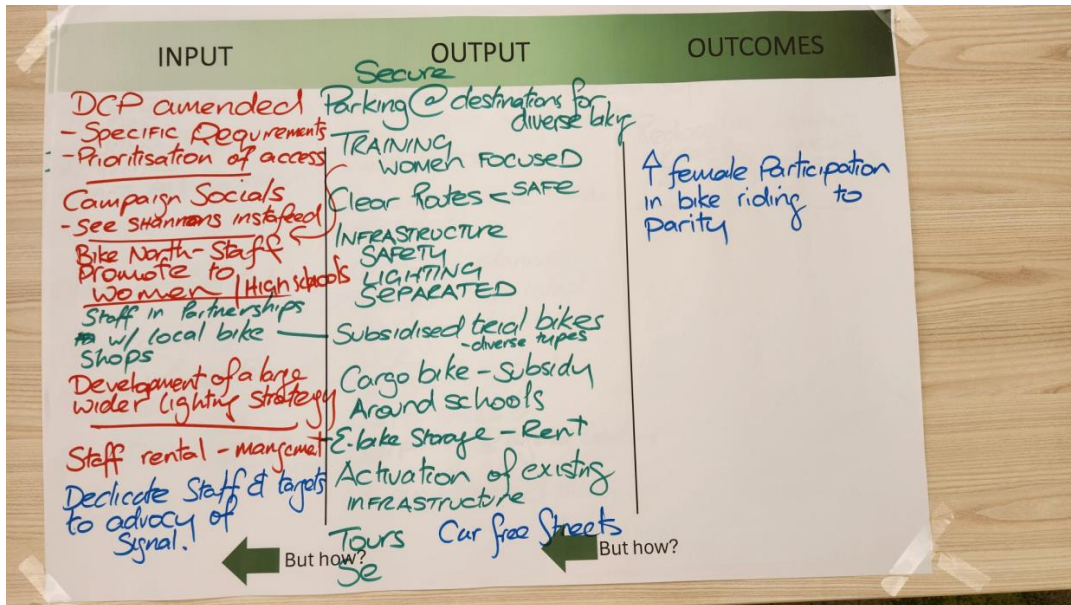 INPUT
DCP amended
- Specific Requrements
- Prioritisation of access
Campaign Socials
- See SHANNONS instafeed
Bike North - Staff
Promote to
women / High schools
Staff in Partnerships
w/ local bike
Shops
Development of a large
wider lighting strategy
Staff rental - mangemet
Dedicate Staff & targets
to advocy of
Signal!
But how?
OUTPUT
Secure
Parking @ destinations for
diverse
TRAINING
WOMEN FOCUSED
Clear Routes < SAFE
INFRASTRUCTURE
SAFETY
LIGHTING
SEPARATED
Subsidised trial bikes
- diverse types
Cargo bike - Subsidy
Around schools
E-bike Storage - Rent
Activation of existing
INFRASTRUCTURE
Tours
Car free Streets
Se
But how?
OUTCOMES
↑ female Participation
in bike riding to
parity